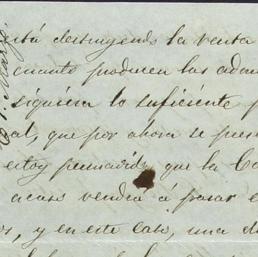 está destruyendo la venta
cuanto producen las adua
siquiera lo suficiente p
al, que por ahora se pres
estoy persuadido que la Ca
acaso vendrá á parar e
os, y en este caso, una de